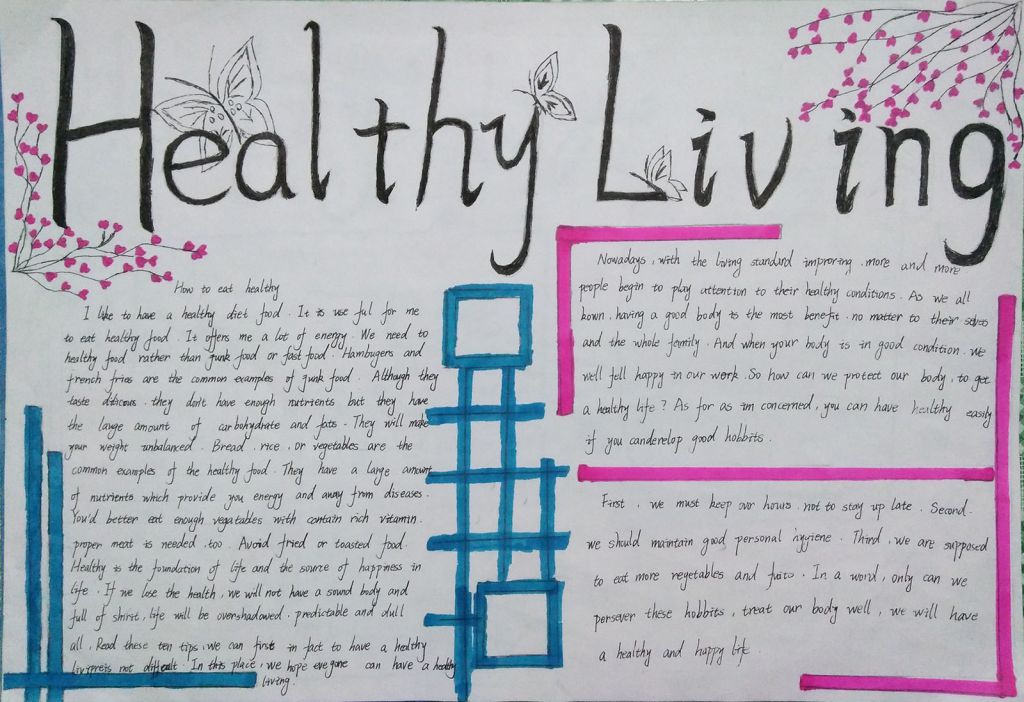 Healthy Living
How to eat healthy
I like to have a healthy diet food. It is use ful for me
to eat healthy food. It offers me a lot of energy. We need to
healthy food rather than junk food or fast food. Hambugers and
french fries are the common examples of junk food. Although they
taste dilicous, they don't have enough nutrients but they have
the large amount of carbohydrate and fats. They will make
your weight unbalanced. Bread, rice, or vegetables are the
common examples of the healthy food. They have a large amount
of nutrients which provide you energy and away from diseases.
You'd better eat enough vegatables with contain rich vitamin.
proper meat is needed, too. Avoid fried or toasted food.
Healthy is the foundation of life and the source of happiness in
life. If we lose the health, we will not have a sound body and
full of shirit, life will be overshadowed, predictable and dull
all. Read these ten tips, we can first in fact to have a healthy
is not difficult. In this place, we hope evegone can have a healthy
living.
Nowadays, with the living standard improring, more and more
people begin to play attention to their healthy conditions. As we all
kown, having a good body is the most benefit. no matter to their selves
and the whole family. And when your body is in good condition. we
well fell happy in our work. So how can we protect our body, to get
a healthy life? As for as im concerned, you can have healthy easily
if you canderelop good hobbits.
First, we must keep our hours, not to stay up late. Second.
we should maintain good personal hygiene. Third, we are supposed
to eat more regetables and fuits. In a word, only can we
persever these hobbits, treat our body well, we will have
a healthy and happy life.